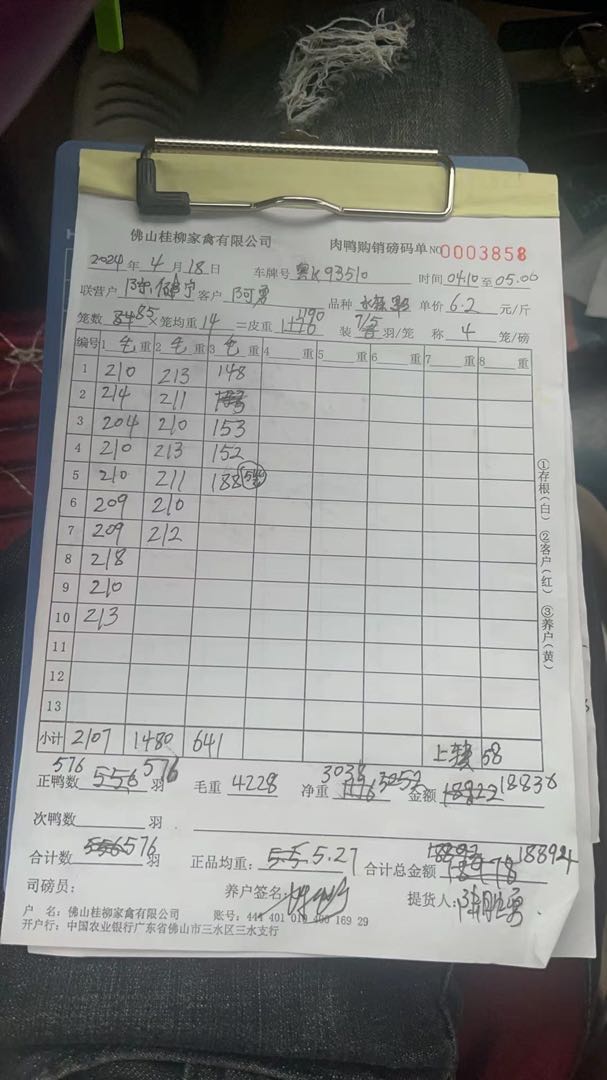 佛山桂柳家禽有限公司 肉鸭购销磅码单 NO 0003858
2024 年 4 月 18 日 车牌号 粤K93510 时间 04.10 至 05.00
联营户 客户 阿勇 品种 单价 6.2 元/斤
笼数 85 ×笼均重 14 =皮重 1190 装 7/5 羽/笼 称 4 笼/磅
编号 1 毛 重 2 毛 重 3 毛 重 4 重 5 重 6 重 7 重 8 重
1 210 213 148
2 214 211
3 204 210 153
4 210 213 152
5 210 211 188
6 209 210
7 209 212
8 218
9 210
10 213
11
12
13
小计 2107 1480 641 上 58
576
正鸭数 576 羽 毛重 4228 净重 3038 金额 18836
次鸭数 羽
合计数 576 羽 正品均重: 5.27 合计总金额 18894
司磅员: 养户签名: 提货人:
户 名: 佛山桂柳家禽有限公司 账号: 169 29
开户行: 中国农业银行广东省佛山市三水区三水支行
①存根(白) ②客户(红) ③养户(黄)